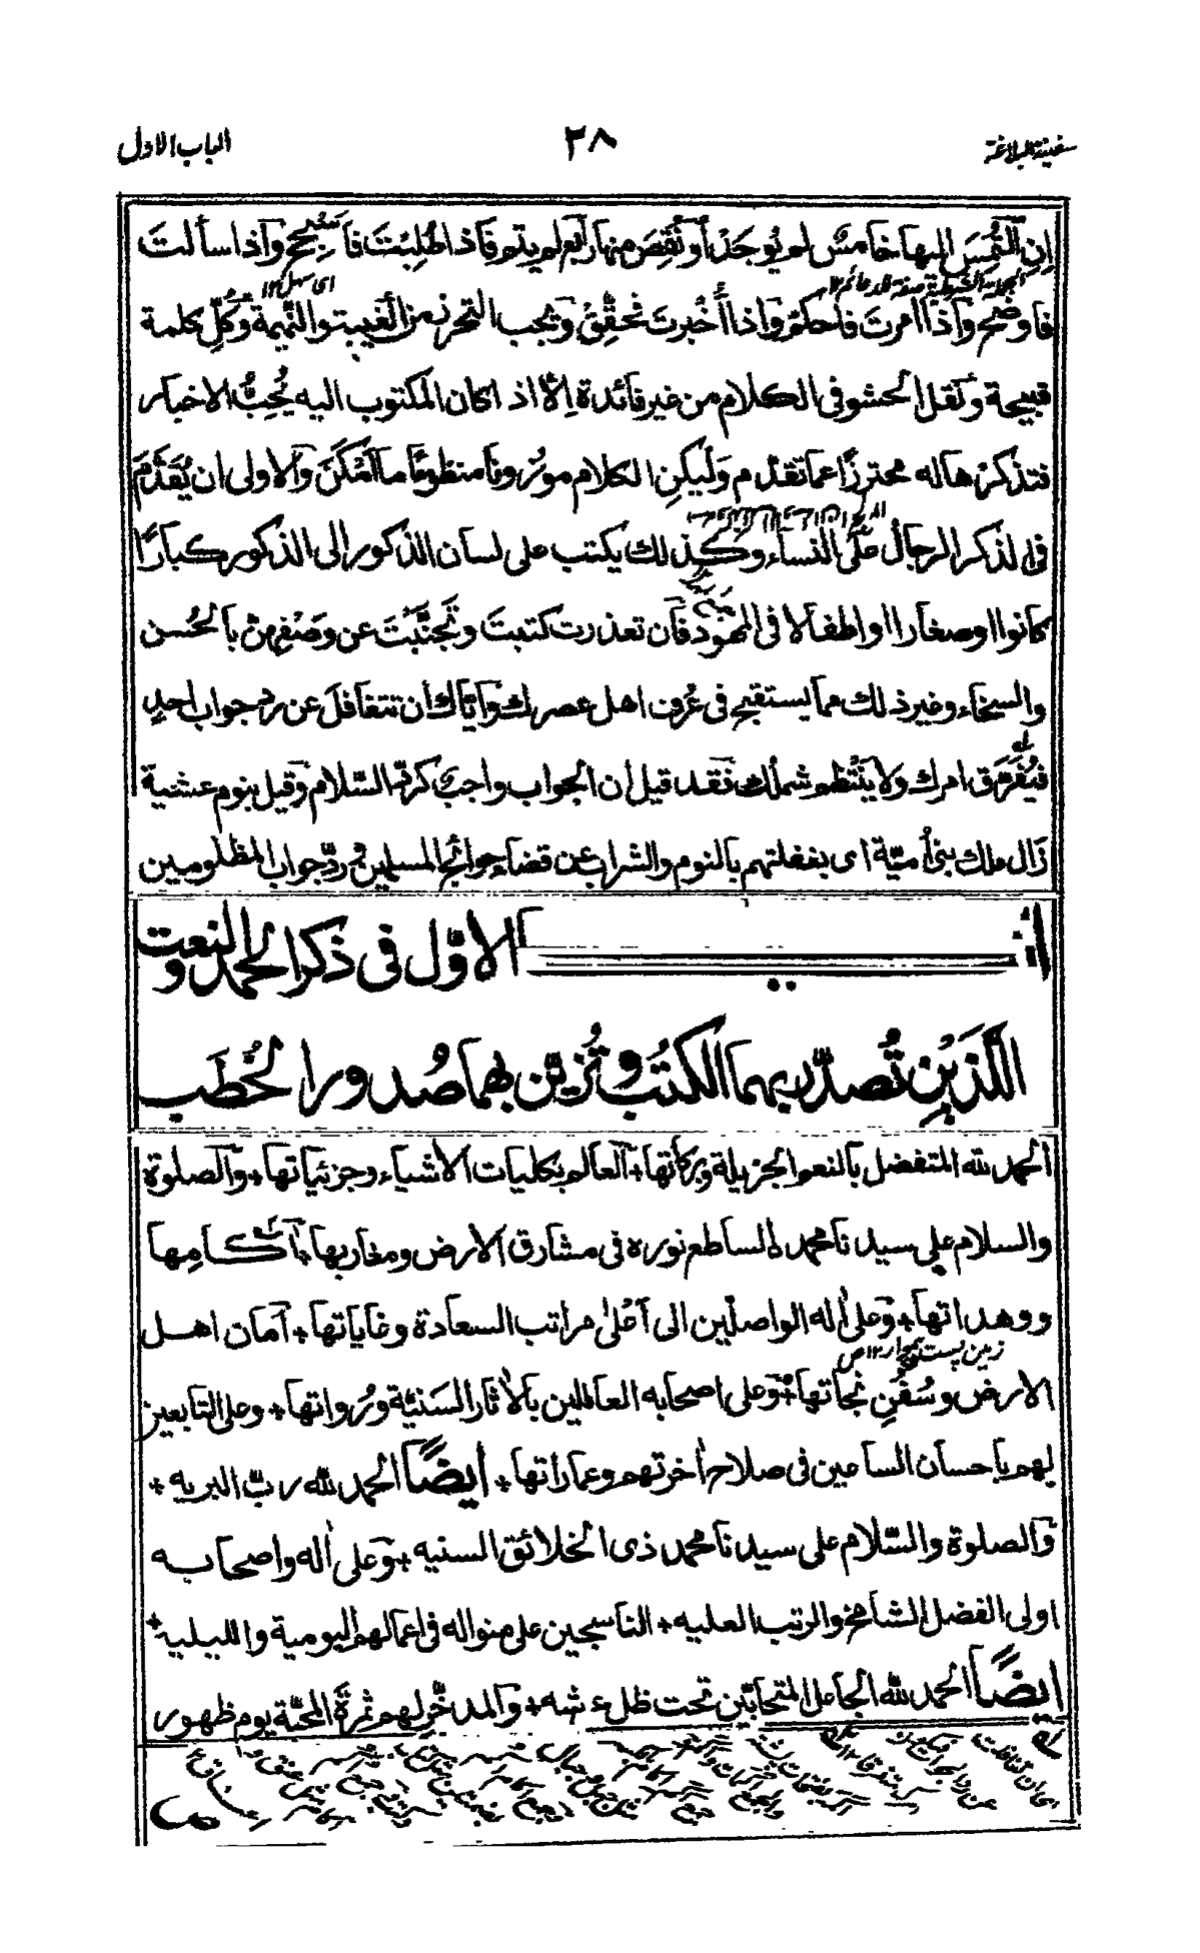 سفينة البلاغة ٣٨ الباب الاول
اِن التُمِسَ اليها خامسٌ لم يُوجَدْ أو نُقِصَ منها رابع لم يتم فاذا طُلِبْتَ فأسجح واذا سألت
فاوضح واذا أمرت فاحكم واذا أُخبرت فحقِّق ويجب التحرز من الغيبة والنميمة وكل كلمة
قبيحة ونقل الحشو فى الكلام من غير فائدة اِلّا اذا كان المكتوب اليه يُحِبُّ الاخبار
فتذكرْها له محترزًا عما تقدم وليكن الكلام موزونا منظومًا ما أمْكَنَ والاولى ان يُقَدَّمَ
فى الذكر الرجال على النساء وكذلك يكتب على لسان الذكور الى الذكور كبارًا
كانوا او صغارا او اطفالا فى المهود فان تعذرت كتبت وتجنَّبْتَ عن وصفهن بالحُسن
والسخاء وغير ذلك مما يستقبح فى عُرف اهل عصرك واياك أن تتغافل عن رد جواب احدٍ
فيُفَرَّق امرك ولا ينتظم شملك فقد قيل أن الجواب واجب كردّ السّلام وقيل بنوم عشية
زال ملك بنى أُميّة اى بغفلتهم بالنوم والشراب عن قضاء حوائج المسلمين و ردّ جواب المظلومين
الاوّل فى ذكر الحمد والنعت
اللّذَيْنِ تُصدّر بهما الكتب و تُزيّن بهما صُدور الخُطَب
الحمد لله المتفضل بالنعم الجزيلة وبركاتها + العالم بكليات الاشياء وجزئياتها + والصلوة
والسلام على سيدنا محمد الساطع نوره فى مشارق الارض ومغاربها + آكامِها
ووهداتها + وعلى اٰله الواصلين الى أعْلىٰ مراتب السعادة وغاياتها + أمان اهل
الارض وسُفُنِ نجاتها + وعلى اصحابه العاملين بالاٰثار السَنيّة ورُواتها + وعلى التابعين
لهم باحسان الساعين فى صلاح اٰخرتهم وعماراتها + أيضًا الحمد لله رب البريه +
والصلوة والسّلام على سيدنا محمد ذى الخلائق السنيه + وعلى اٰله واصحابه
اولى الفضل الشامخ والرتب العليه + الناسجين على منواله فى اعمالهم اليومية والليلية +
ايضًا الحمد لله الجاعل المتحابّين تحت ظل عرشه + والمدخّر لهم ثمرة المحبّة يوم ظهور